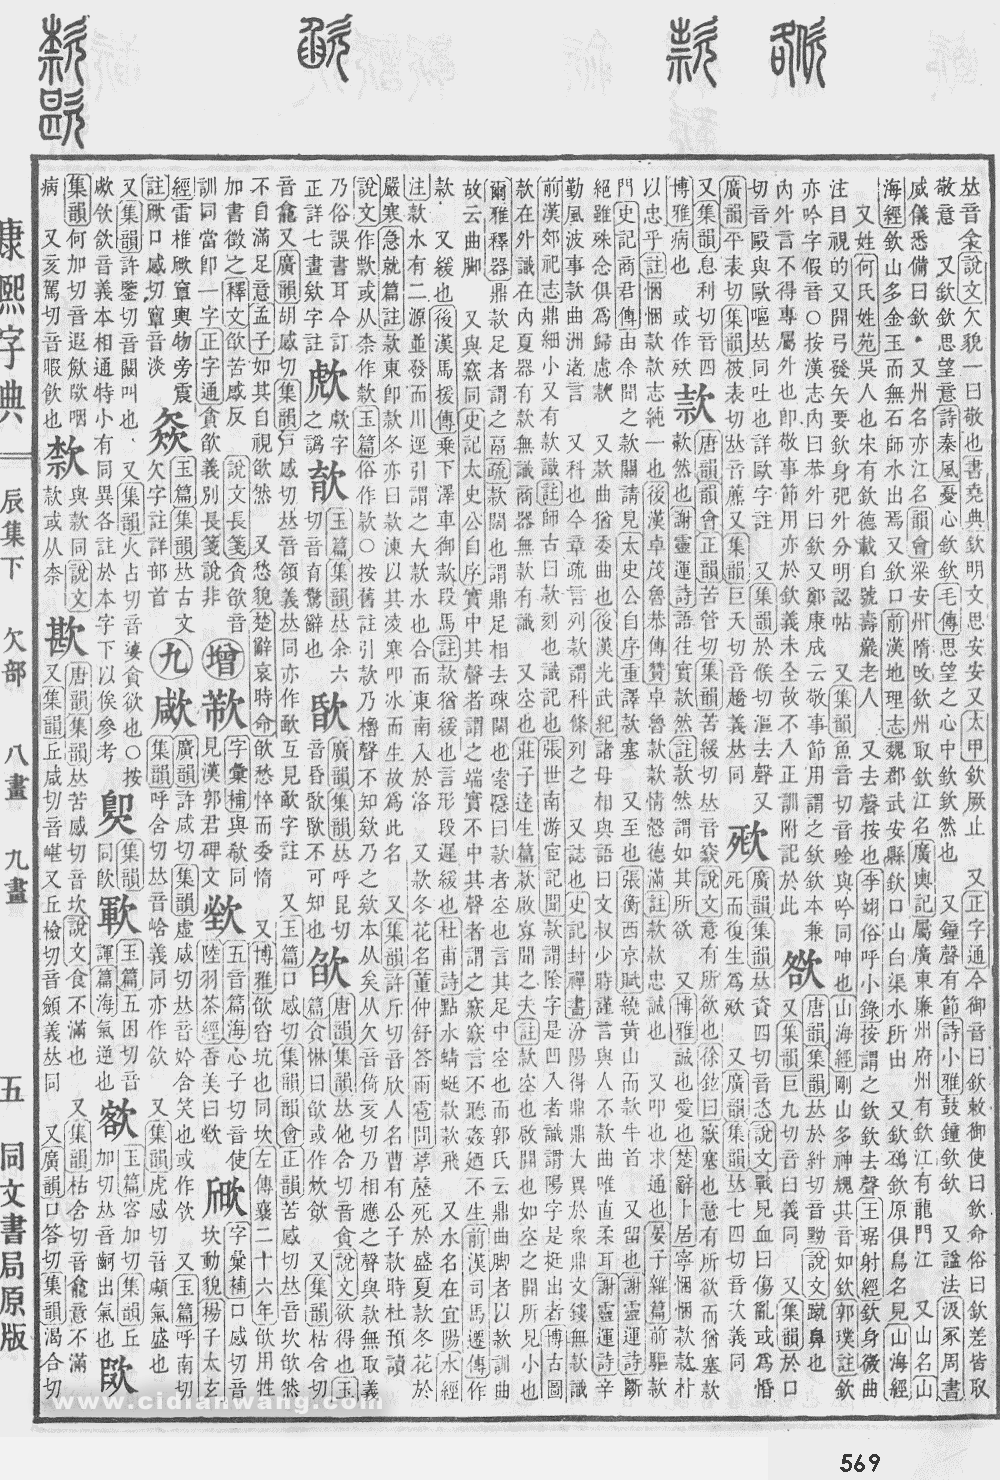 𠀤音佘說文欠貌一曰敬也書堯典欽明文思安安又太甲欽厥止 又正字通今御音曰欽敕御使曰欽命俗曰欽差皆取
敬意 又欽欽思望意詩秦風憂心欽欽毛傳思望之心中欽欽然也 又鐘聲有節詩小雅鼓鐘欽欽 又諡法汲冢周書
威儀悉備曰欽 又州名亦江名韻會梁安州隋改欽州取欽江名廣輿記屬廣東廉州府州有欽江有龍門江 又山名山
海經欽山多金玉而無石師水出焉又欽口前漢地理志魏郡武安縣欽口山白渠水所出 又欽䲹欽原俱鳥名見山海經
又姓何氏姓苑吳人也宋有欽德載自號壽巖老人 又去聲按也李翊俗呼小錄按謂之欽欽去聲王琚射經欽身微曲
注目視的又開弓發矢要欽身弝外分明認帖 又集韻魚音切音唫與吟同呻也山海經剛山多神䰠其音如欽郭璞註欽
亦吟字假音○按漢志內曰恭外曰欽又鄭康成云敬事節用謂之欽欽本兼
內外言不得專屬外也卽敬事節用亦於欽義未全故不入正訓附記於此
唐韻集韻𠀤於糾切音黝說文蹴鼻也
又集韻巨九切音臼義同 又集韻於口
切音毆與歐嘔𠀤同吐也詳歐字註 又集韻於候切漚去聲
廣韻平表切集韻被表切𠀤音藨又集韻巨夭切音趫義𠀤同
㱞
廣韻集韻𠀤資四切音恣說文戰見血曰傷亂或爲惛
死而復生爲㱞 又廣韻集韻𠀤七四切音次義同
又集韻息利切音四
博雅病也 或作㱞
款
唐韻韻會正韻苦管切集韻苦緩切𠀤音窾說文意有所欲也徐鉉曰窾塞也意有所欲而猶塞款
款然也謝靈運詩語往實款然註款然謂如其所欲 又博雅誠也愛也楚辭卜居寧悃悃款款朴
以忠乎註悃悃款款志純一也後漢卓茂魯恭傳贊卓魯款款情慤德滿註款款忠誠也 又叩也求通也晏子雜篇前驅款
門史記商君傳由余聞之款關請見太史公自序重譯款塞 又至也張衡西京賦繞黃山而款牛首 又留也謝靈運詩斷
絕雖殊念俱爲歸慮款 又款曲猶委曲也後漢光武紀諸母相與語曰文叔少時謹言與人不款曲唯直柔耳謝靈運詩辛
勤風波事款曲洲渚言 又科也今章疏言列款謂科條列之 又誌也史記封禪書汾陽得鼎鼎大異於衆鼎文鏤無款識
前漢郊祀志鼎細小又有款識註師古曰款刻也識記也張世南游宦記聞款謂陰字是凹入者識謂陽字是挺出者博古圖
款在外識在內夏器有款無識商器無款有識 又空也莊子達生篇款啟寡聞之夫註款空也啟開也如空之開所見小也
爾雅釋器鼎款足者謂之鬲疏款闊也謂鼎足相去疎闊也索隱曰款者空也言其足中空也而郭氏云鼎曲脚者以款訓曲
故云曲脚 又與窾同史記太史公自序實中其聲者謂之端實不中其聲者謂之窾窾言不聽姦廼不生前漢司馬遷傳作
款 又緩也後漢馬援傳乘下澤車御款段馬註款猶緩也言形段遲緩也杜甫詩點水蜻蜓款款飛 又水名在宜陽水經
注款水有二源並發而川逕引謂之大款水也合而東南入於洛 又款冬花名董仲舒答雨雹問葶藶死於盛夏款冬花於
嚴寒急就篇註款東卽款冬亦曰款凍以其凌寒叩冰而生故爲此名 又集韻許斤切音欣人名曹有公子款時杜預讀
說文作㱁或从柰作㰲玉篇俗作款○按舊註引款乃櫓聲不知欸乃之欸本从矣从欠音倚亥切乃相應之聲與款無取義
乃俗誤書耳今訂
正詳七畫欸字註
玉篇集韻𠀤余六
切音育驚辭也
廣韻集韻𠀤呼昆切
音昏歇㰭不可知也
欿
唐韻集韻𠀤他含切音貪說文欲得也玉
篇貪惏曰欿或作歁飲 又集韻枯含切
音龕又廣韻胡感切集韻戸感切𠀤音頷義𠀤同亦作㰹互見㰹字註 又玉篇口感切集韻韻會正韻苦感切𠀤音坎欿然
不自滿足意孟子如其自視欿然 又愁貌楚辭哀時命欿愁悴而委惰 又博雅欿窞坑也同坎左傳襄二十六年欿用牲
加書徵之釋文欿苦感反 說文長箋貪欲音
訓同當卽一字正字通貪欲義別長箋說非
增
字彙補與欷同
見漢郭君碑文
五音篇海心子切音使
陸羽茶經香美曰㰇
字彙補口感切音
坎動貌揚子太玄
經雷椎欿窞輿物旁震
註欿口感切窞音淡
玉篇集韻𠀤古文
欠字註詳部首
九
廣韻許咸切集韻虛咸切𠀤音㛍含笑也或作㰦 又玉篇呼南切
集韻呼含切𠀤音峆義同亦作欽 又集韻虎感切音顑氣盛也
又集韻許鑒切音闞叫也 又集韻火占切音 貪欲也○按
歁欽歆音義本相通特小有同異各註於本字下以俟參考
集韻何加切音遐歕歁咽
病 又亥駕切音暇飲也
與款同說文
款或从柰
歁
唐韻集韻𠀤苦感切音坎說文食不滿也 又集韻枯含切音龕意不滿
又集韻丘咸切音嵁又丘檢切音顩義𠀤同 又廣韻口答切集韻渴合切
康熙字典
辰集下 欠部 八畫 九畫
五 同文書局原版
www.cidianwang.com
569